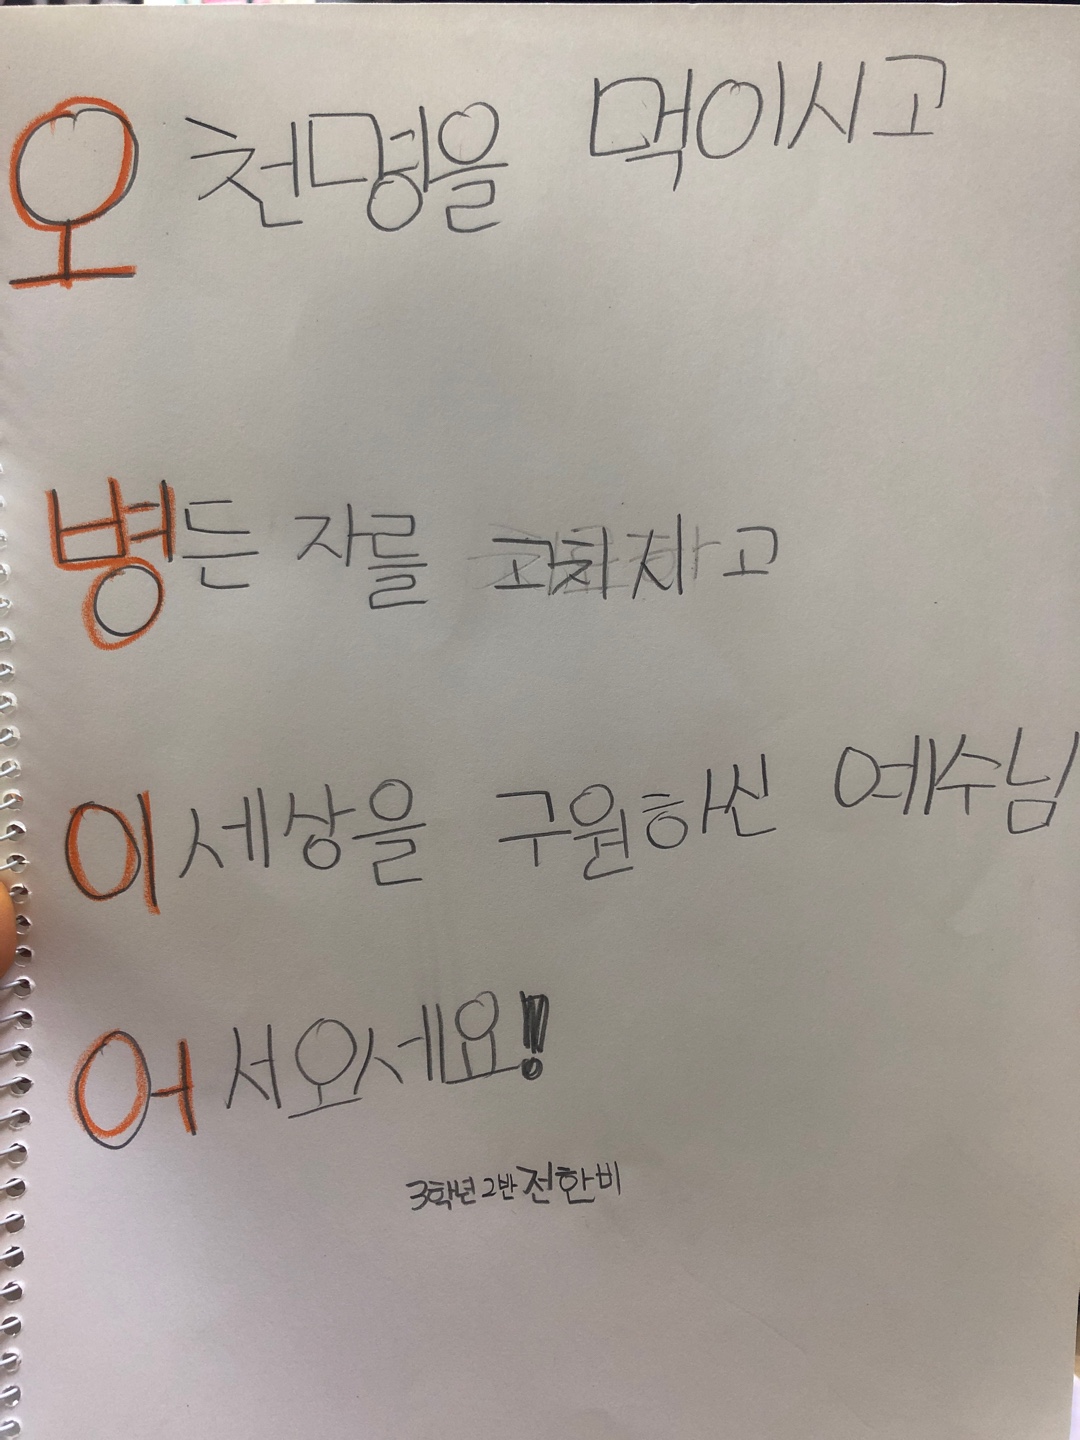 오 천명을 먹이시고
병든 자를 고치시고
이 세상을 구원하신 예수님
어서오세요!
3학년 2반 전한비